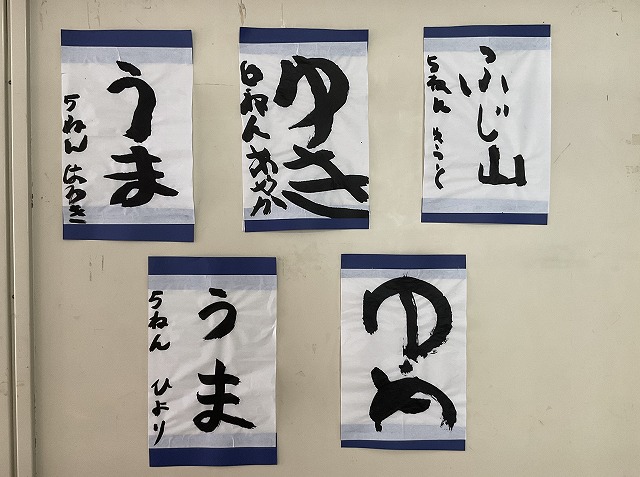 うま
5ねん はるき
ゆき
6ねん あやか
ふじ山
5ねん
うま
5ねん ひより
ゆめ